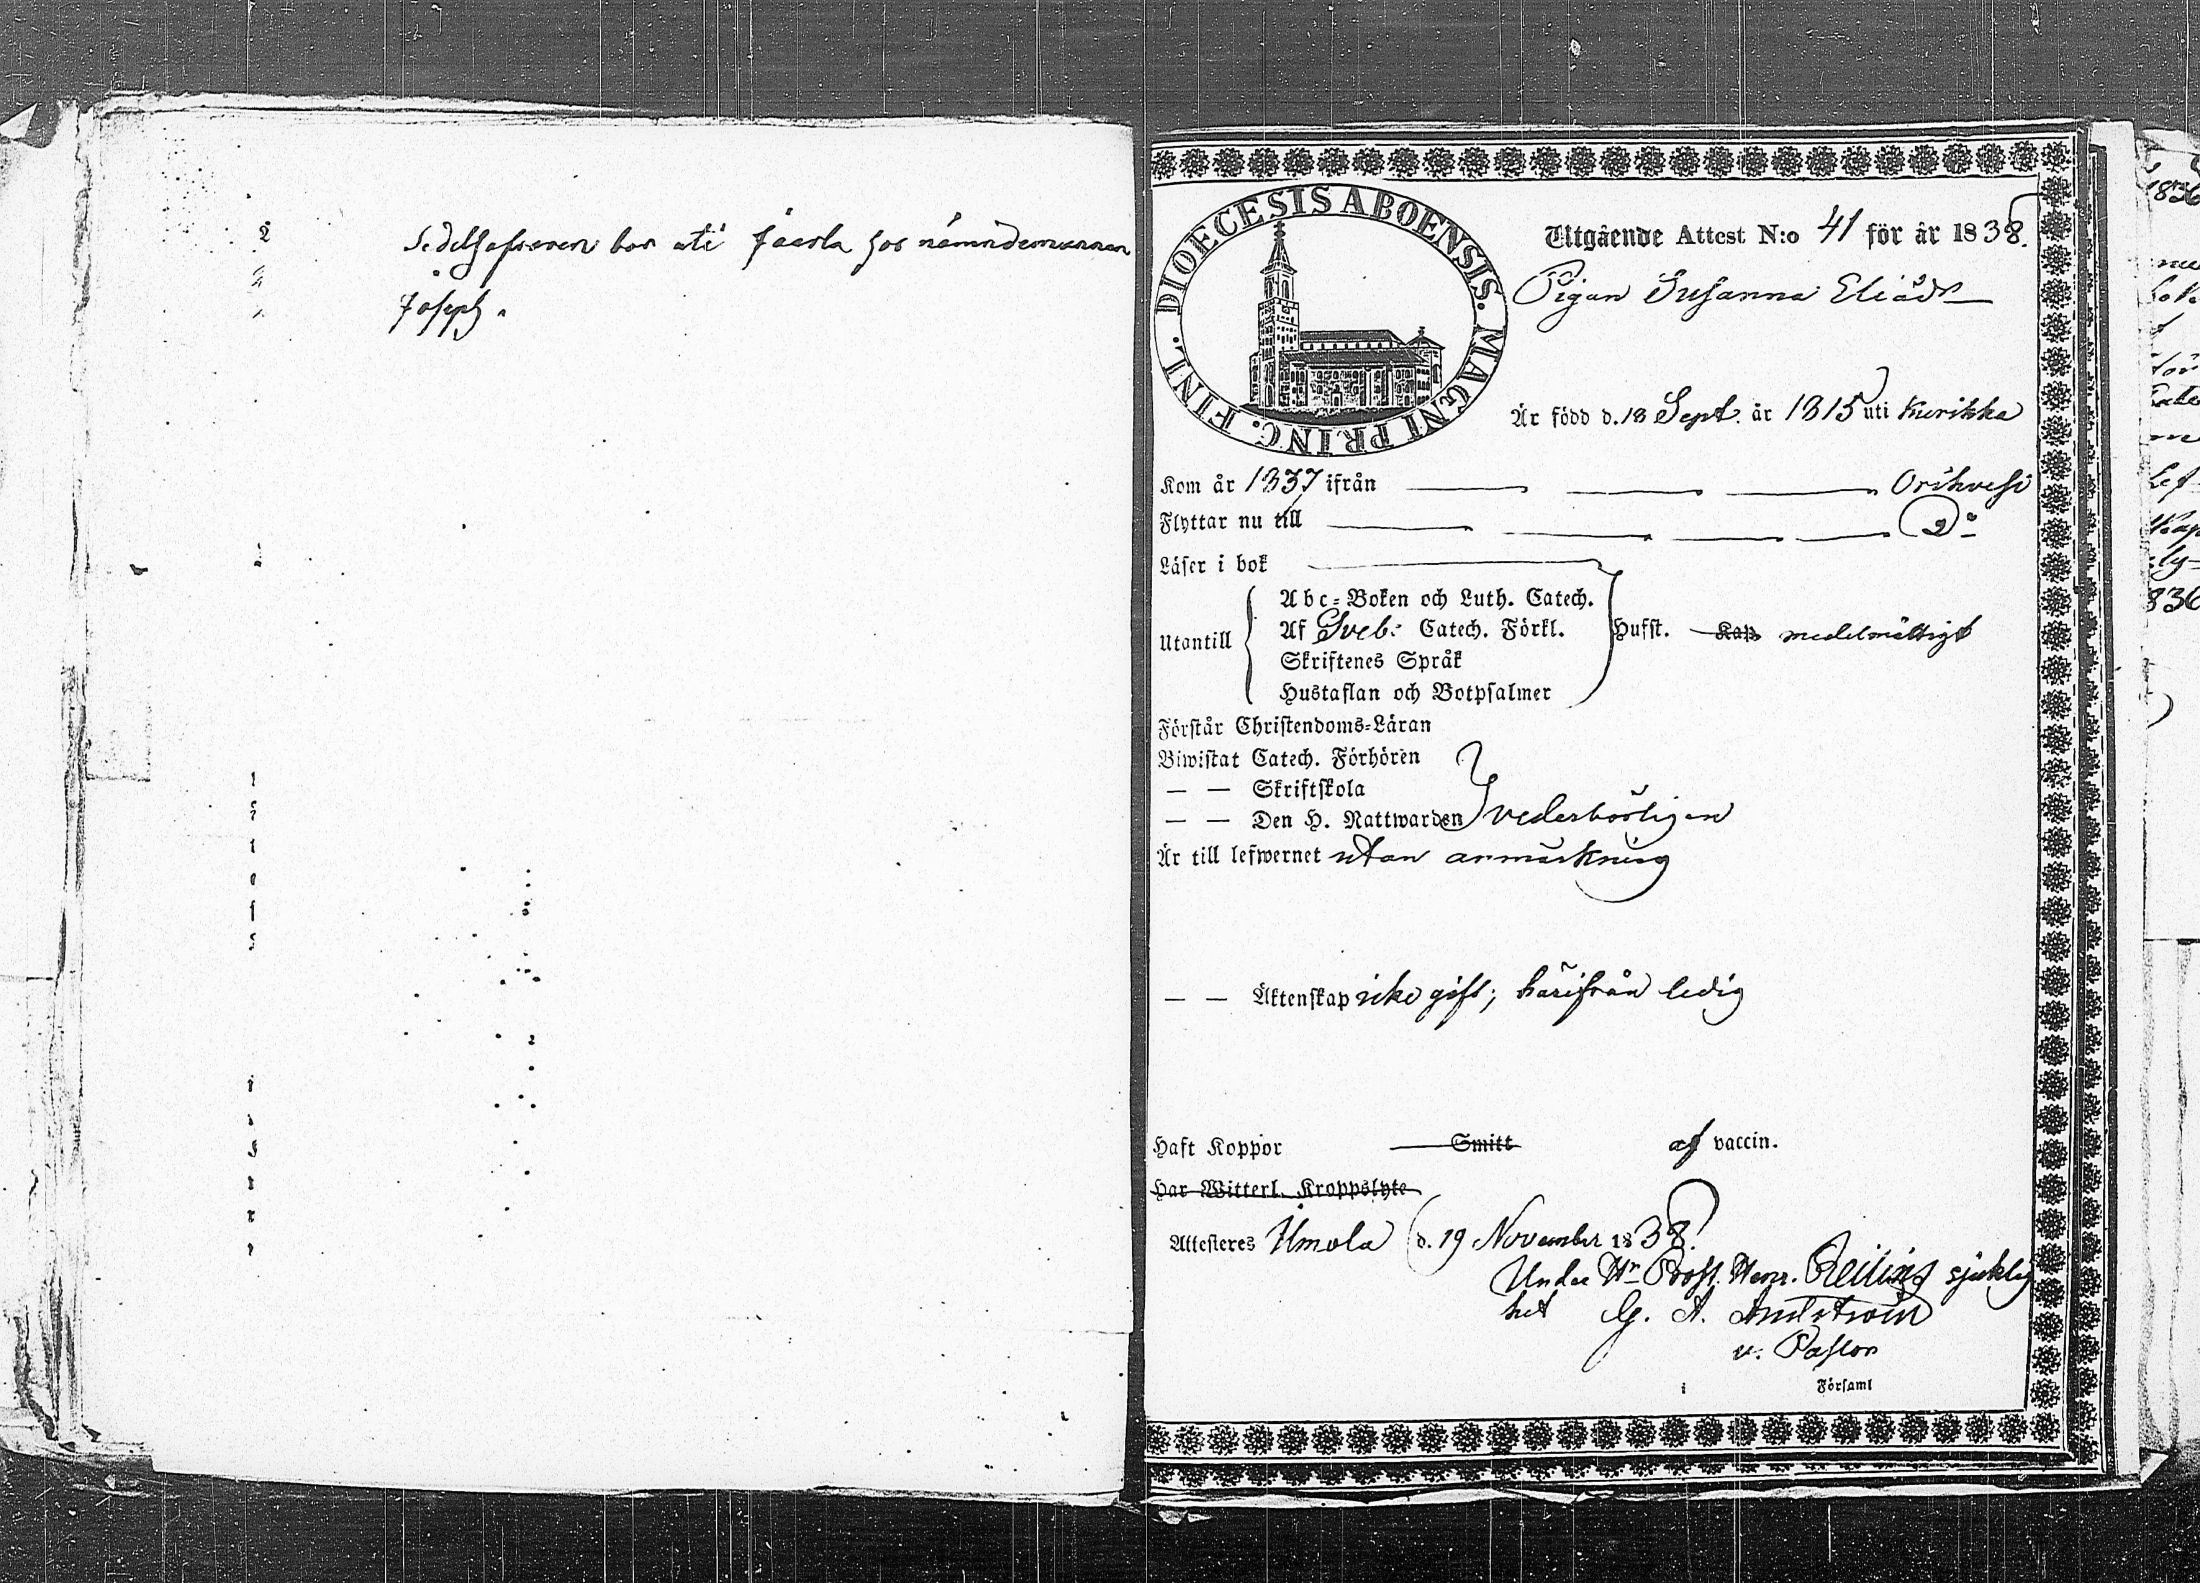 Sedelhafvaren bor uti Jäerla hos nämndemannen
Joseph.
DIOECESIS ABOENSIS. MAGNI PRINC. FINL.
Utgående Attest N:o 41 för år 1838.
Pigan Susanna Eliäd:r
Är född d. 18 Sept. år 1815 uti Kurikka
Kom år 1837 ifrån Orihvesi
Flyttar nu till Do
Läser i bok
Abc-Boken och Luth. Catech.
Utantill Af Sveb: Catech. Förkl. Hufst. Kap medelmåttigt
Skriftenes Språk
Hustaflan och Botpsalmer
Förstår Christendoms-Läran
Biwistat Catech. Förhören
— — Skriftskola
— — Den H. Nattwarden vederbörligen
Är till lefwernet utan anmärkning
— — Äktenskap icke gift; härifrån ledig
Haft Koppor Smitt af vaccin.
Har Witterl. Kroppslyte
Attesteres Ilmola d. 19 November 1838.
Under Hr Prost. Henr. sjuklig
het G. A.
v. Pastor
i Församl